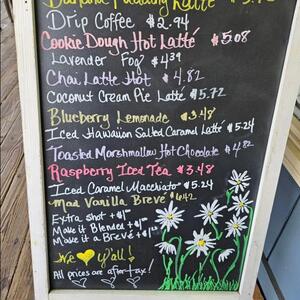 Banana Pudding Latte $5.72
Drip Coffee $2.94
Cookie Dough Hot Latté $5.08
Lavender Fog $4.39
Chai Latte Hot $4.82
Coconut Cream Pie Latté $5.72
Blueberry Lemonade $3.48
Iced Hawaiian Salted Caramel Latté $5.24
Toasted Marshmallow Hot Chocolate $4.82
Raspberry Iced Tea $3.48
Iced Caramel Macchiato $5.24
Mad Vanilla Brevé $6.42
Extra Shot +$1
Make it Blended +$1
Make it a Brevé +$1
We y'all!
All prices are after tax!